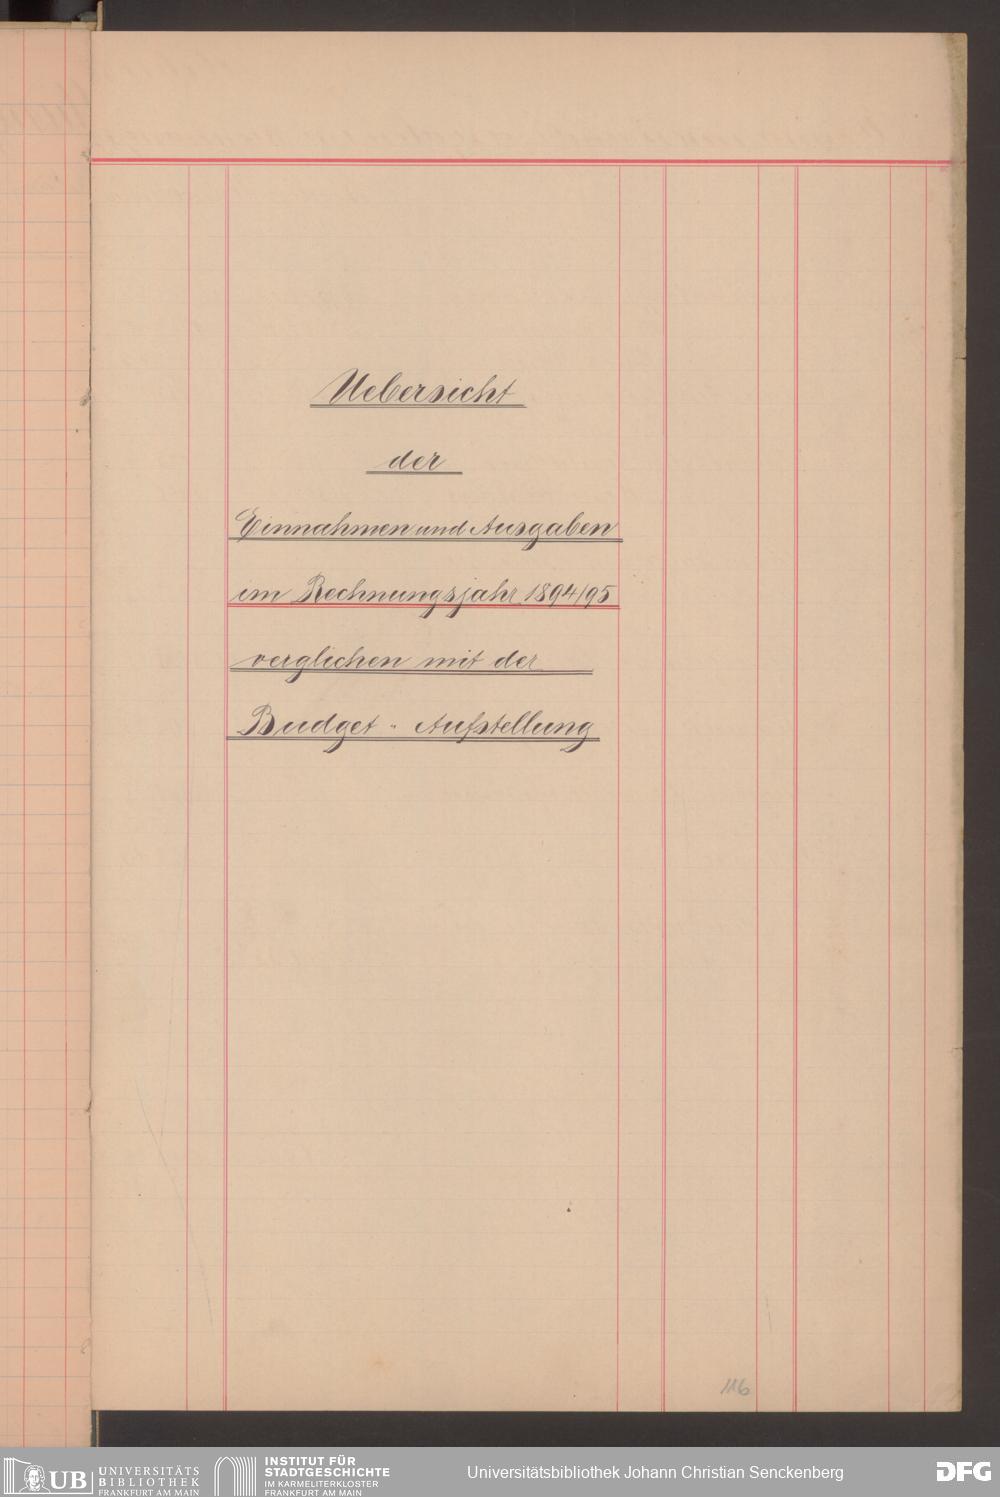 Uebersicht
der
Einnahmen und Ausgaben
im Rechnungsjahr 1894/95
verglichen mit der
Budget - Aufstellung
116
UB
UNIVERSITÄTS
BIBLIOTHEK
FRANKFURT AM MAIN
INSTITUT FÜR
STADTGESCHICHTE
IM KARMELITERKLOSTER
FRANKFURT AM MAIN
Universitätsbibliothek Johann Christian Senckenberg
DFG